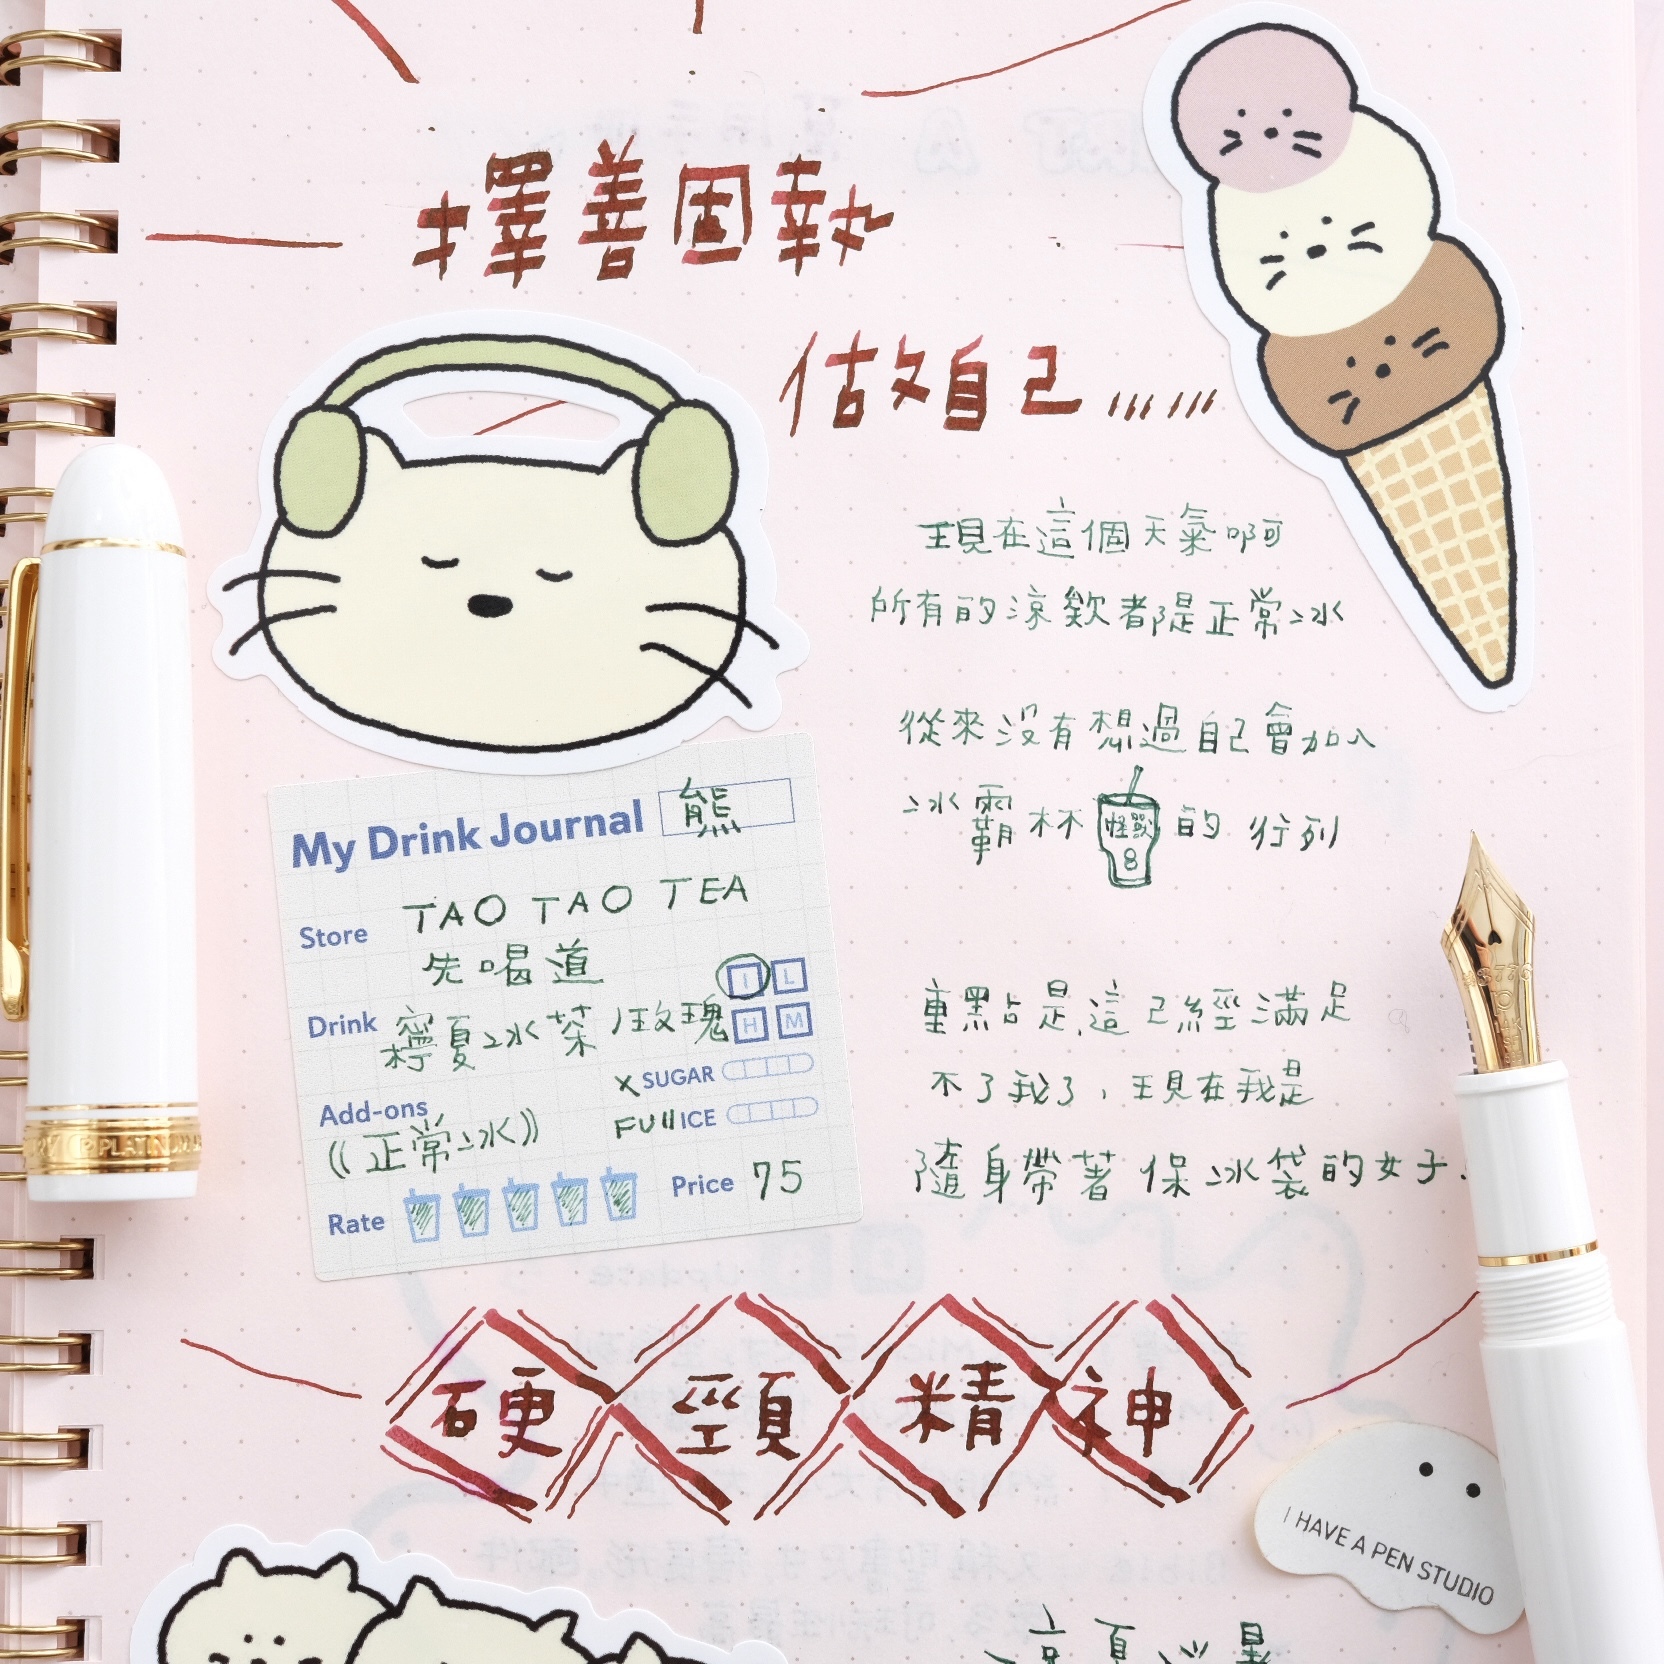 擇善固執
做自己......
現在這個天氣啊
所有的涼飲都是正常冰
從來沒有想過自己會加入
冰霸杯 怪獸8 的行列
重點是,這已經滿足
不了我了,現在我是
隨身帶著保冰袋的女子.
My Drink Journal 熊
Store TAO TAO TEA
先喝道
Drink 檸夏冰茶/玫瑰
I L
H M
X SUGAR
Add-ons
((正常冰))
FUll ICE
Rate
Price 75
硬頸精神
I HAVE A PEN STUDIO
PLATINUM